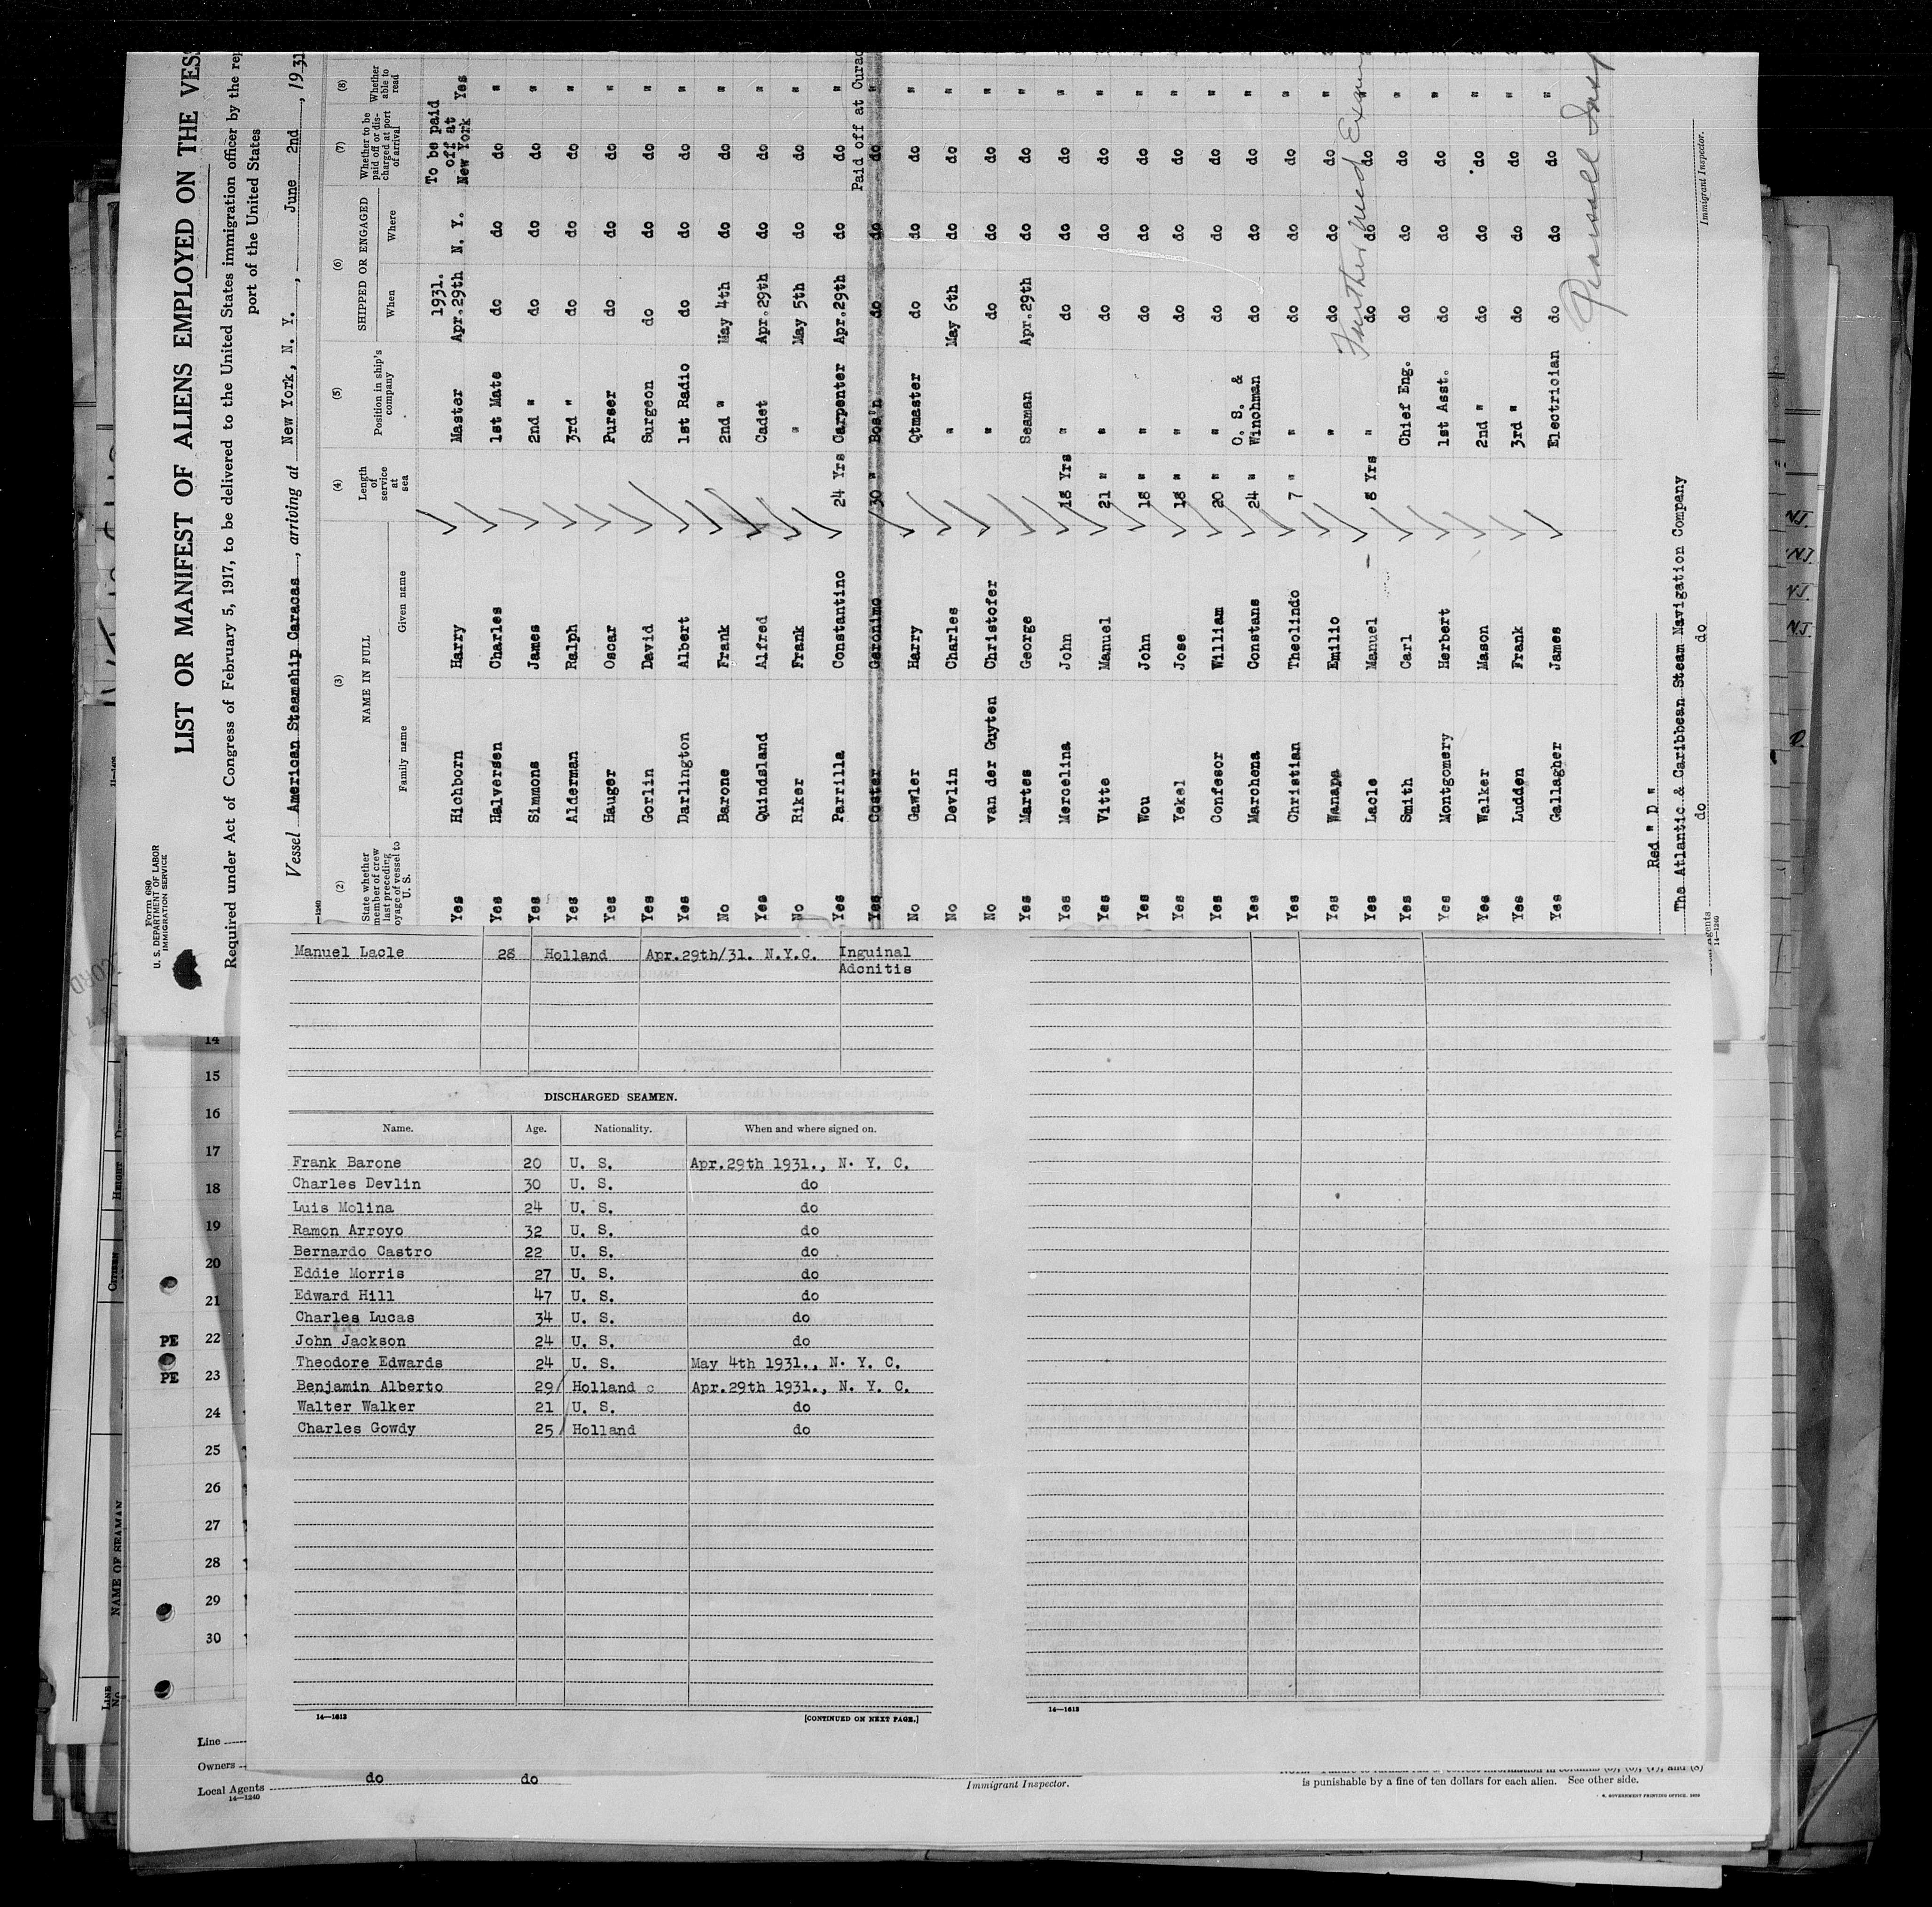 Form 680
U. S. DEPARTMENT OF LABOR
IMMIGRATION SERVICE
LIST OR MANIFEST OF ALIENS EMPLOYED ON THE VES
Required under Act of Congress of February 5, 1917, to be delivered to the United States immigration officer by the rep
port of the United States
Vessel American Steamship Caracas, arriving at New York, N. Y., June 2nd, 1931
14-1240
(2) (3) (4) (5) (6) (7) (8)
State whether member of crew last preceding voyage of vessel to U. S.
NAME IN FULL
Family name Given name
Length of service at sea
Position in ship's company
SHIPPED OR ENGAGED
When Where
Whether to be paid off or discharged at port of arrival
Whether able to read
Yes Hichborn Harry Master 1931. Apr.29th N. Y. To be paid off at New York Yes
Yes Halversen Charles 1st Mate do do do "
Yes Simmons James 2nd " do do do "
Yes Alderman Ralph 3rd " do do do "
Yes Hauger Oscar Purser do do do "
Yes Gorlin David Surgeon do do do "
Yes Darlington Albert 1st Radio do do do "
No Barone Frank 2nd " May 4th do do "
Yes Quindsland Alfred Cadet Apr.29th do do "
No Riker Frank " May 5th do do "
Yes Parrilla Constantino 24 Yrs Carpenter Apr.29th do do "
Paid off at Curac
Yes Coster Geronimo 30 " Bos'n do do do "
No Gawler Harry Qtmaster do do do "
No Devlin Charles " May 6th do do "
No van der Guyten Christofer " do do do "
Yes Martes George Seaman Apr.29th do do "
Yes Mercelina John 18 Yrs " do do do "
Yes Vitte Manuel 21 " " do do do "
Yes Wou John 18 " " do do do "
Yes Yekel Jose 18 " " do do do "
Yes Confesor William 20 " " do do do "
Yes Marchena Constans 24 " C. S. & Winchman do do do "
Yes Christian Theolindo 7 " " do do do "
Yes Wanapa Emilio " do do do "
Yes Lacle Manuel 8 Yrs " do do do "
Further Med Exam
Yes Smith Carl Chief Eng. do do do "
Yes Montgomery Herbert 1st Asst. do do do "
Yes Walker Mason 2nd " do do do "
Yes Ludden Frank 3rd " do do do "
Yes Gallagher James Electrician do do do "
Red " D "
The Atlantic & Caribbean Steam Navigation Company
do do
Immigrant Inspector.
14-1240
Manuel Lacle 28 Holland Apr.29th/31. N.Y.C. Inguinal
Adonitis
DISCHARGED SEAMEN.
Name. Age. Nationality. When and where signed on.
Frank Barone 20 U. S. Apr.29th 1931., N. Y. C.
Charles Devlin 30 U. S. do
Luis Molina 24 U. S. do
Ramon Arroyo 32 U. S. do
Bernardo Castro 22 U. S. do
Eddie Morris 27 U. S. do
Edward Hill 47 U. S. do
Charles Lucas 34 U. S. do
John Jackson 24 U. S. do
Theodore Edwards 24 U. S. May 4th 1931., N. Y. C.
Benjamin Alberto 29 Holland Apr.29th 1931., N. Y. C.
Walter Walker 21 U. S. do
Charles Gowdy 25 Holland do
14—1613
[CONTINUED ON NEXT PAGE.]
14—1613
14
15
16
17
18
19
20
21
PE 22
PE 23
24
25
26
27
28
29
30
NAME OF SEAMAN
LINE No.
HEIGHT
N.J.
N.J.
N.J.
N.J.
Line
Owners
Local Agents do do
14—1240
Immigrant Inspector.
is punishable by a fine of ten dollars for each alien. See other side.